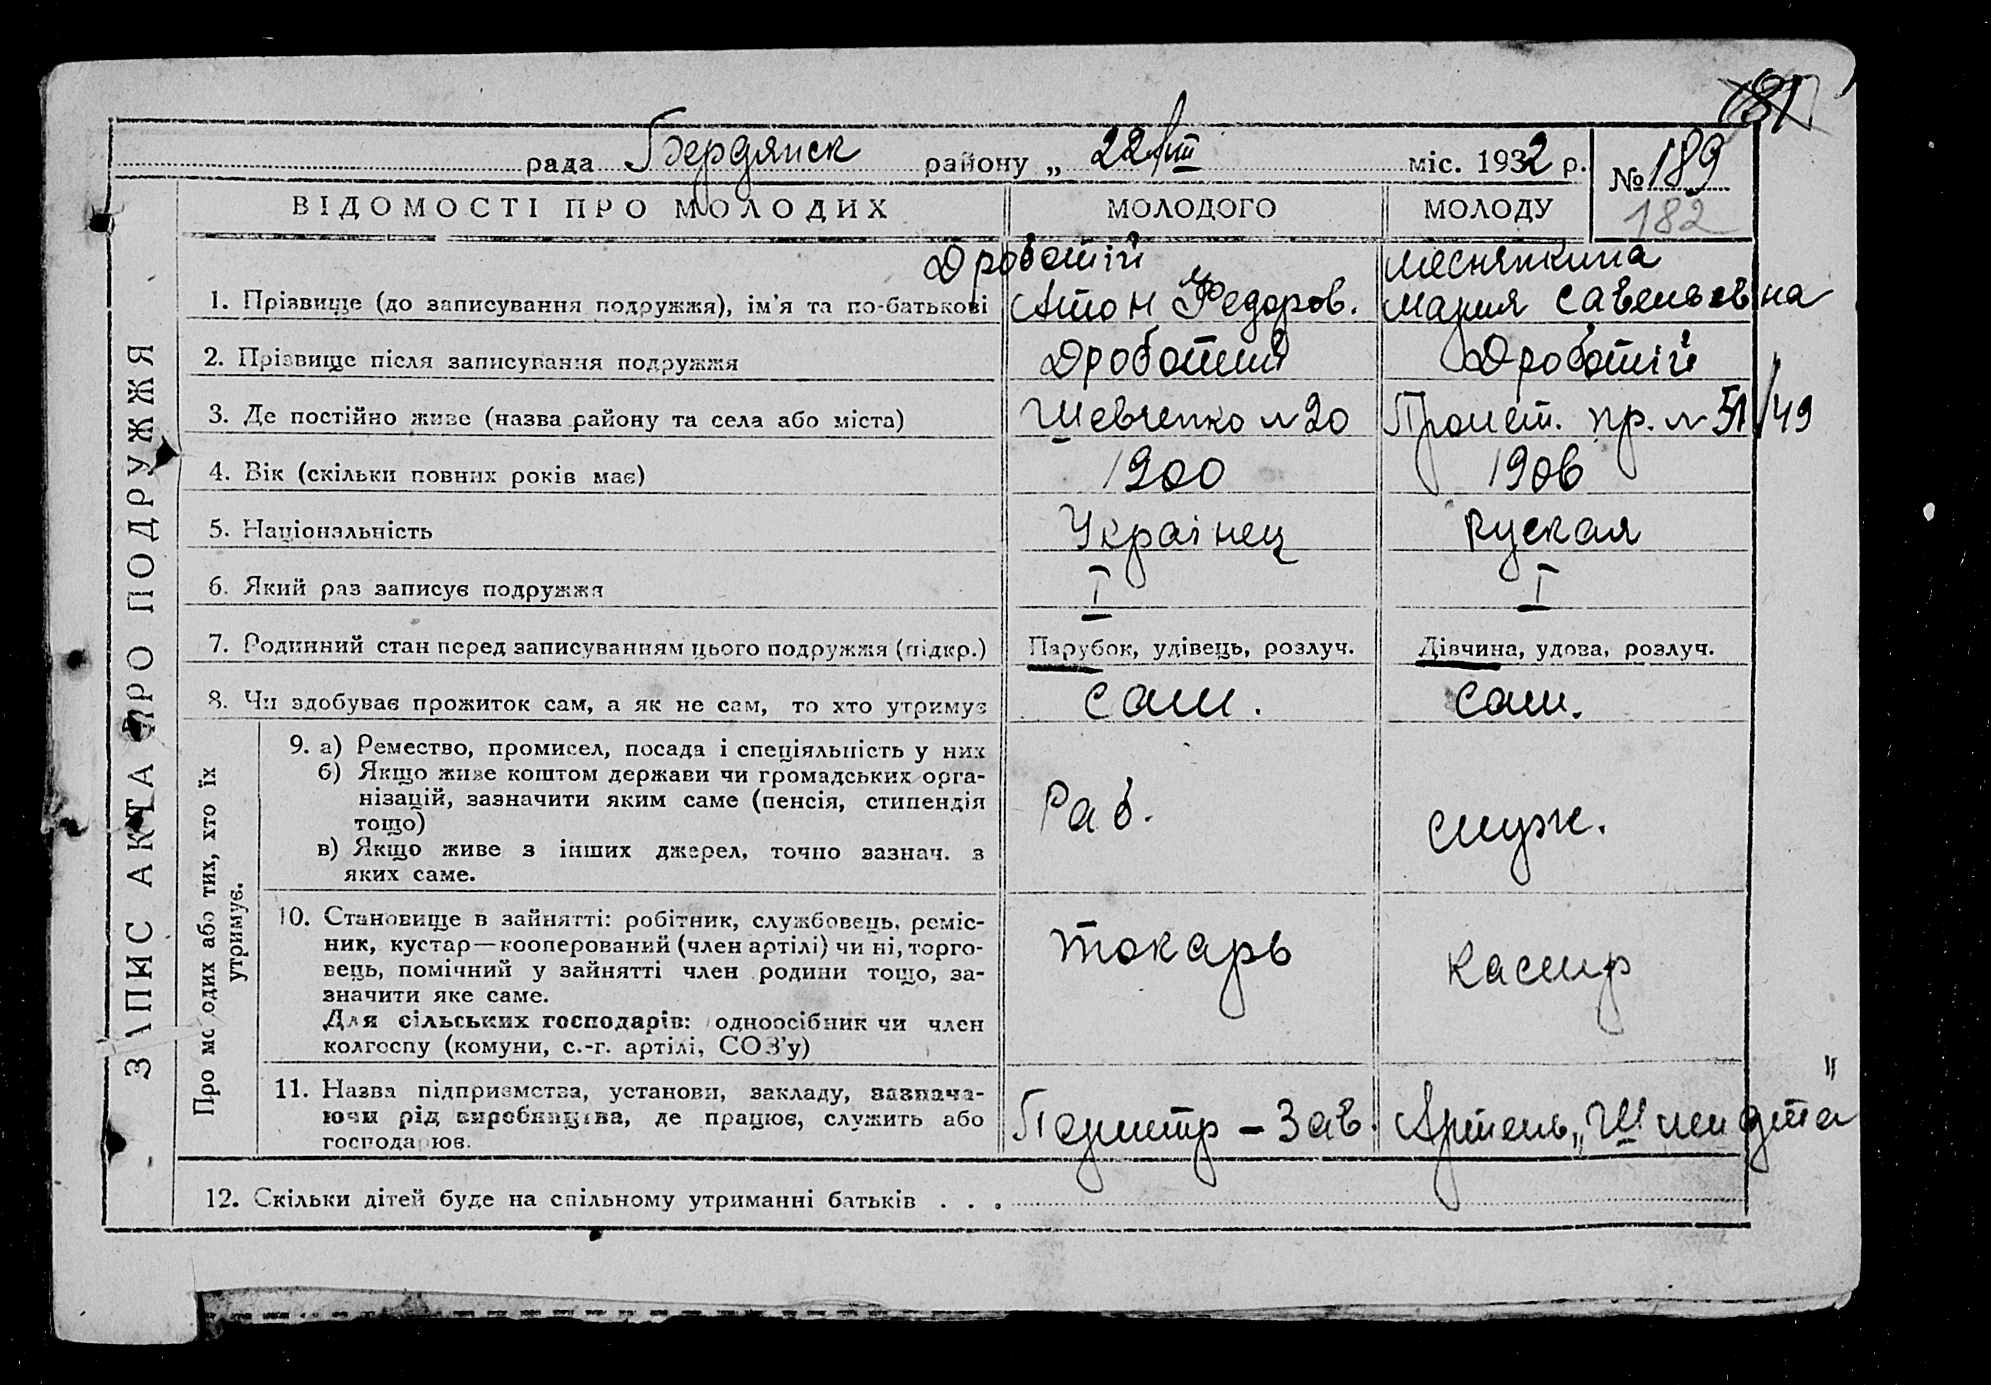 181
рада Бердянск району „ 22/III міс. 1932 р. № 189
182
ВІДОМОСТІ ПРО МОЛОДИХ МОЛОДОГО МОЛОДУ
ЗАПИС АКТА ПРО ПОДРУЖЖЯ
Дроботій
1. Прізвище (до записування подружжя), ім'я та по-батькові Антон Федоров. Мария Савельевна
2. Прізвище після записування подружжя Дроботий Дроботій
3. Де постійно живе (назва району та села або міста) Шевченко №20 Пролет. пр. № 51/49
4. Вік (скільки повних років має) 1900 1906
5. Національність Українец Руская
6. Який раз записує подружжя I I
7. Родинний стан перед записуванням цього подружжя (підкр.) Парубок, удівець, розлуч. Дівчина, удова, розлуч.
8. Чи здобуває прожиток сам, а як не сам, то хто утримує сам. сам.
Про молодих або тих, хто їх утримує.
9. а) Ремество, промисел, посада і спеціяльність у них
б) Якщо живе коштом держави чи громадських орга-
нізацій, зазначити яким саме (пенсія, стипендія
тощо)
в) Якщо живе з інших джерел, точно зазнач. з
яких саме.
Раб. служ.
10. Становище в зайнятті: робітник, службовець, реміс-
ник, кустар—кооперований (член артілі) чи ні, торго-
вець, помічний у зайнятті член родини тощо, за-
значити яке саме.
Для сільських господарів: одноосібник чи член
колгоспу (комуни, с.-г. артілі, СОЗ'у)
токарь кассир
11. Назва підприємства, установи, закладу, зазнача-
ючи рід виробництва, де працює, служить або
господарює.
Зав. Артель „Шмидта"
12. Скільки дітей буде на спільному утриманні батьків . . .